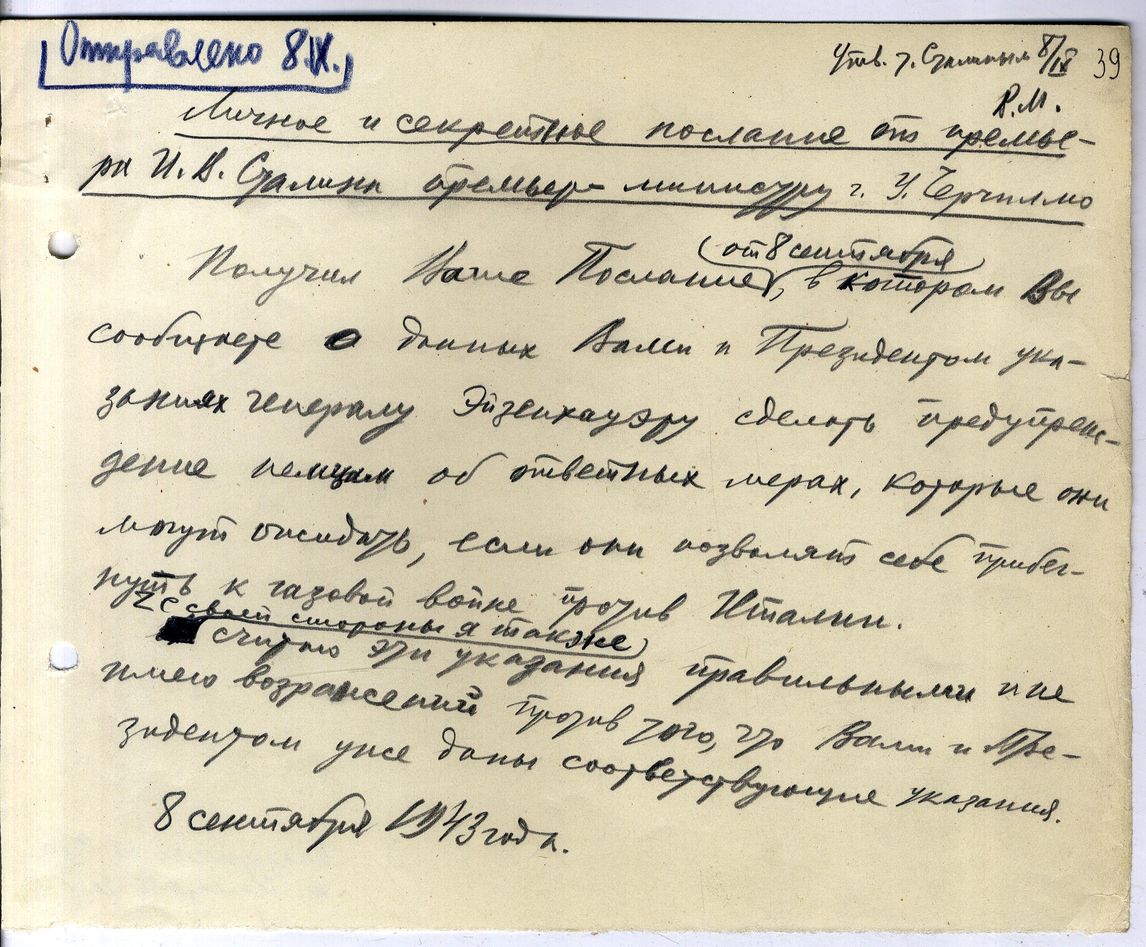 Отправлено 8.IX.
Утв. т. Сталиным 8/IX
39
В.М.
Личное и секретное послание от премье-
ра И.В. Сталина премьер-министру г. У. Черчиллю
от 8 сентября
Получил Ваше Послание, в котором Вы
сообщаете о данных Вами и Президентом ука-
заниях генералу Эйзенхауэру сделать предупреж-
дение немцам об ответных мерах, которые они
могут ожидать, если они позволят себе прибег-
нуть к газовой войне против Италии.
Со своей стороны я также
считаю эти указания правильными и не
имею возражений против того, что Вами и Пре-
зидентом уже даны соответствующие указания.
8 сентября 1943 года.